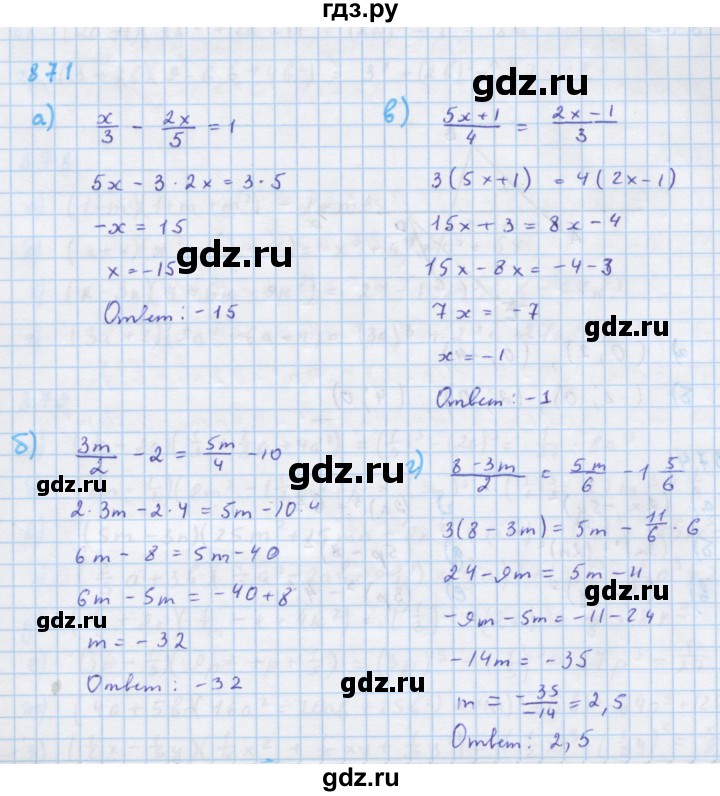 гдз.ру
871
а) x/3 - 2x/5 = 1
5x - 3·2x = 3·5
-x = 15
x = -15
Ответ: -15
в) (5x+1)/4 = (2x-1)/3
3(5x+1) = 4(2x-1)
15x+3 = 8x-4
15x-8x = -4-3
7x = -7
x = -1
Ответ: -1
б) 3m/2 - 2 = 5m/4 - 10
2·3m - 2·4 = 5m - 10·4
6m - 8 = 5m - 40
6m - 5m = -40+8
m = -32
Ответ: -32
г) (8-3m)/2 = 5m/6 - 1 5/6
3(8-3m) = 5m - 11/6 · 6
24-9m = 5m-11
-9m-5m = -11-24
-14m = -35
m = -35/-14 = 2,5
Ответ: 2,5
gdz.ru
gdz.ru
gdz.ru
gdz.ru
gdz.ru
gdz.ru
gdz.ru
gdz.ru
gdz.ru
gdz.ru